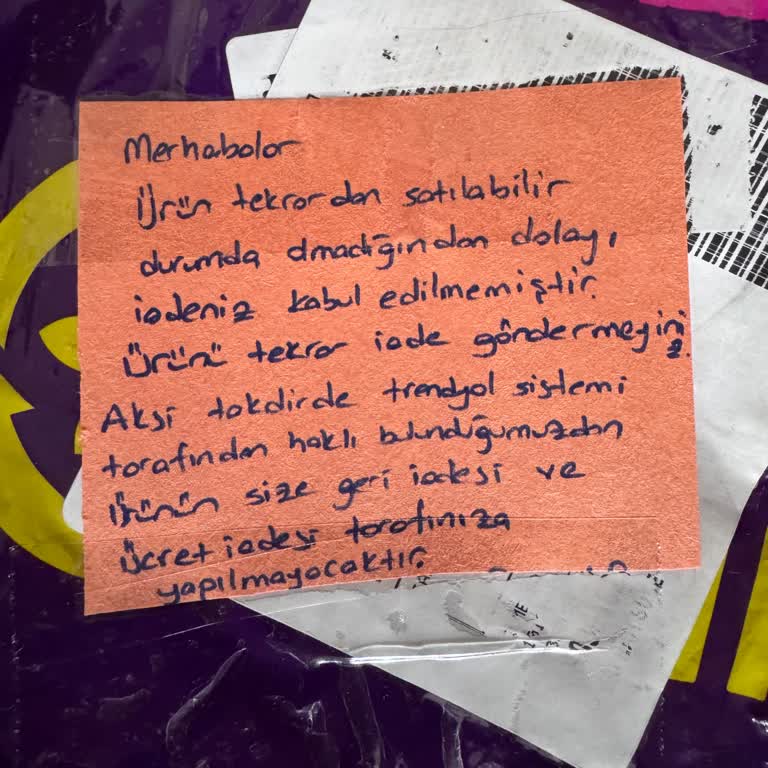 Merhabalar
Ürün tekrardan satılabilir
durumda olmadığından dolayı
iadeniz kabul edilmemiştir.
Ürünü tekrar iade göndermeyini
z.
Aksi takdirde trendyol sistemi
tarafından haklı bulunduğumuzdan
ürünün size geri iadesi ve
ücret iadesi tarafınıza
yapılmayacaktır.